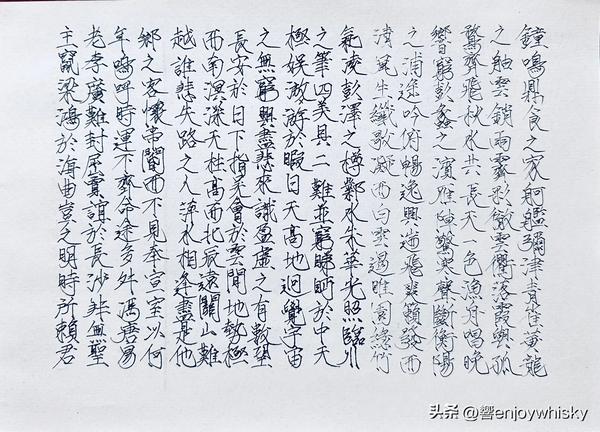 鐘鳴鼎食之家舸艦彌津青雀黃龍
之舳雲銷雨霽彩徹雲衢落霞與孤
鶩齊飛秋水共長天一色漁舟唱晚
響窮彭蠡之濱雁陣驚寒聲斷衡陽
之浦遙吟俯暢逸興遄飛爽籟發而
清風生纖歌凝而白雲遏睢園綠竹
氣凌彭澤之樽鄴水朱華光照臨川
之筆四美具二難並窮睇眄於中天
極娛遊於暇日天高地迥覺宇宙
之無窮興盡悲來識盈虛之有數望
長安於日下指吳會於雲間地勢極
而南溟深天柱高而北辰遠關山難
越誰悲失路之人萍水相逢盡是他
鄉之客懷帝閽而不見奉宣室以何
年嗚呼時運不齊命途多舛馮唐易
老李廣難封屈賈誼於長沙非無聖
主竄梁鴻於海曲豈乏明時所賴君
头条 @響enjoywhisky